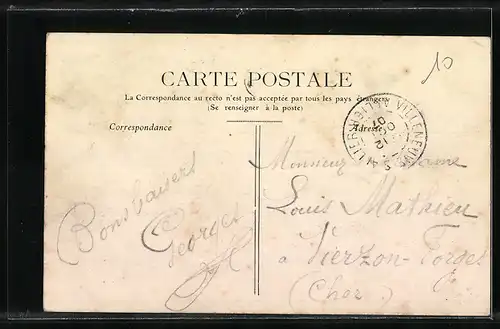 10
CARTE POSTALE
La Correspondance au recto n'est pas acceptée par tous les pays étrangers
(Se renseigner à la poste)
Correspondance
Adresse
VILLENEUVE S ALLIER ALLIER
12
07
Bons baisers
Georges
Monsieur Madame
Louis Mathieu
à Vierzon-Forges
(Cher)